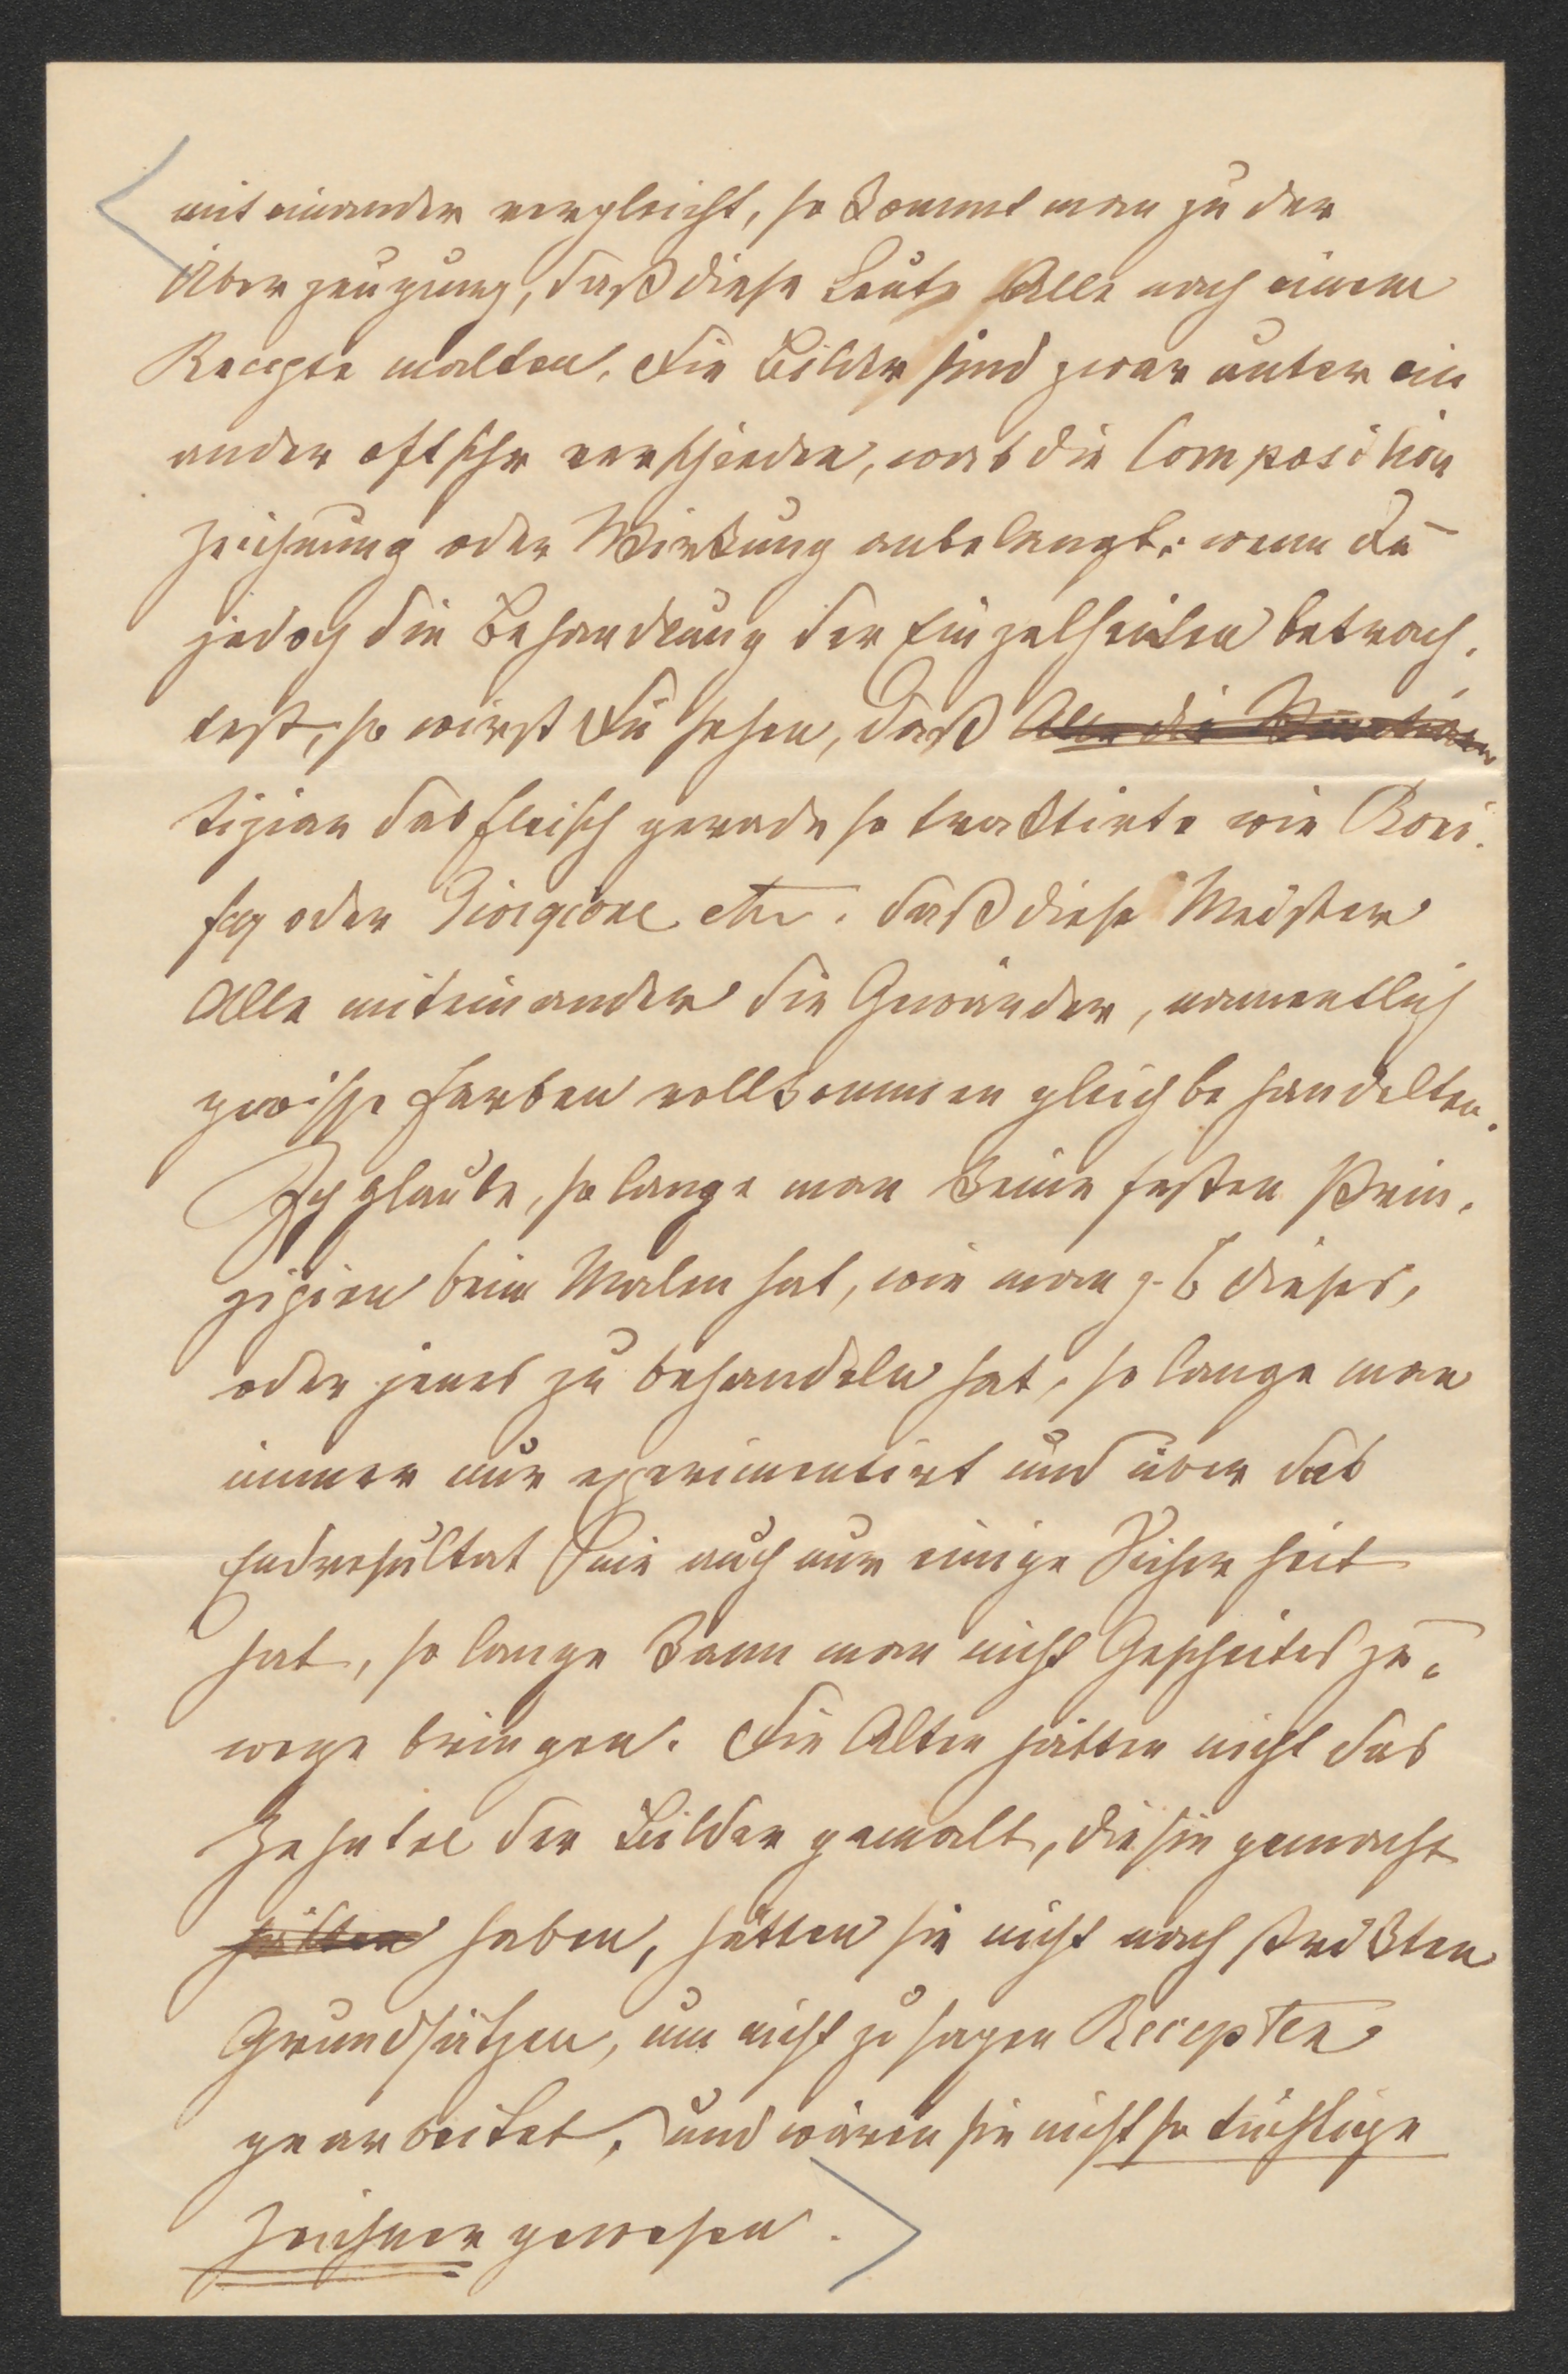 mit einander vergleicht, so kommt man zu der
Überzeugung, daß diese Leute Alle nach einem
Recepte malten. Die Bilder sind zwar unter ein
ander oft sehr verschieden, was die Composition
Zeichnung oder Wirkung anbelangt; wenn Du
jedoch die Behandlung der Einzelheiten betrach-
test, so wirst Du sehen, daß Alle die Venetianer
Tizian das Fleisch gerade so traktirte wie Boni-
fazio oder Giorgione etc. daß diese Meister
Alle miteinander die Gewänder, namentlich
gewisse Farben vollkommen gleich behandelten.
Ich glaube, so lange man keine festen Prin-
zipien beim Malen hat, wie man z. B dieses,
oder jenes zu behandeln hat, so lange man
immer nur experimentirt und über das
Endresultat nie auch nur einige Sicherheit
hat, so lange kann man nicht Gescheites zu-
wege bringen. Die Alten hätten nicht das
Zehntel der Bilder gemalt, die sie gemacht
hätten haben, hätten sie nicht nach strikten
Grundsätzen, um nicht zu sagen Recepten
gearbeitet, und wären sie nicht so tüchtige
Zeichner gewesen.